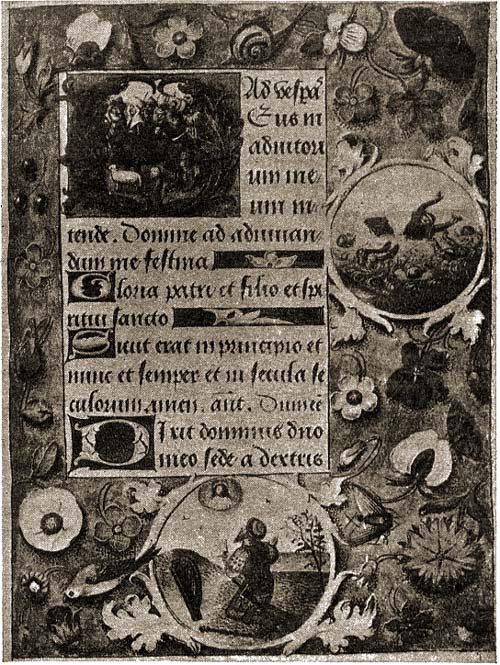 Ad vespa
Eus in
adiutori
um me
um in
tende. Domine ad adiuuan
dum me festina
Gloria patri et filio et spi
ritui sancto
Sicut erat in principio et
nunc et semper et in secula se
culorum. amen. ant. Dum eet
Dixit dominus dno
meo sede a dextris